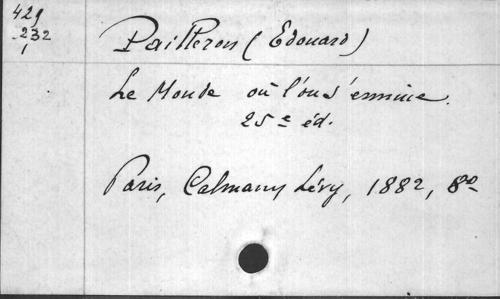 429
232
1
Pailleron (Edouard)
Le Monde où l'on s'ennuie.
25e éd.
Paris, Calmann Lévy, 1882, 8o